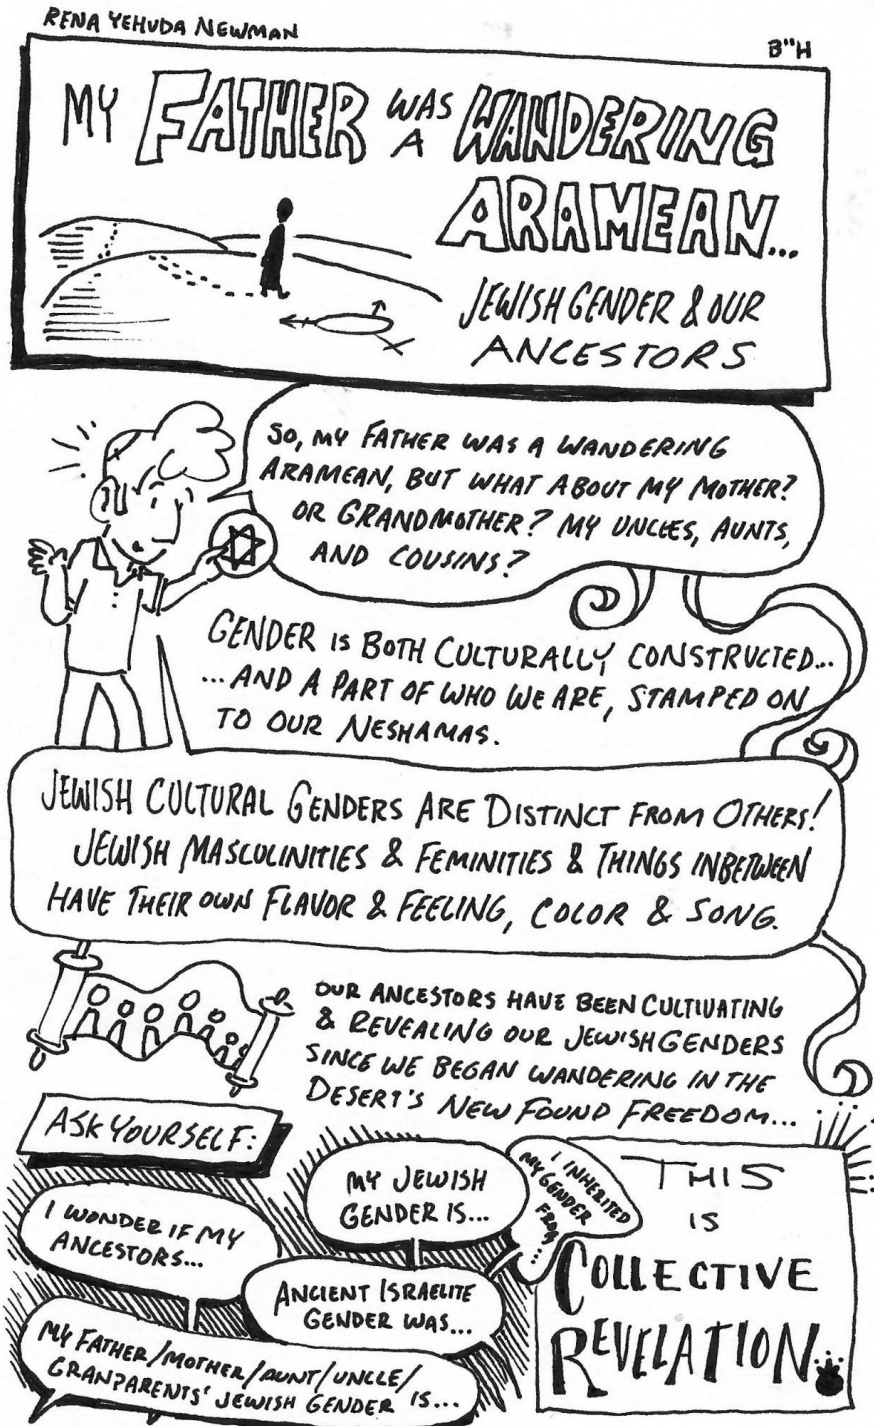 RENA YEHUDA NEWMAN
B"H
MY FATHER WAS A WANDERING
ARAMEAN...
JEWISH GENDER & OUR
ANCESTORS
SO, MY FATHER WAS A WANDERING
ARAMEAN, BUT WHAT ABOUT MY MOTHER?
OR GRANDMOTHER? MY UNCLES, AUNTS,
AND COUSINS?
GENDER IS BOTH CULTURALLY CONSTRUCTED...
...AND A PART OF WHO WE ARE, STAMPED ON
TO OUR NESHAMAS.
JEWISH CULTURAL GENDERS ARE DISTINCT FROM OTHERS!
JEWISH MASCULINITIES & FEMINITIES & THINGS INBETWEEN
HAVE THEIR OWN FLAVOR & FEELING, COLOR & SONG.
OUR ANCESTORS HAVE BEEN CULTIVATING
& REVEALING OUR JEWISH GENDERS
SINCE WE BEGAN WANDERING IN THE
DESERT'S NEW FOUND FREEDOM...
ASK YOURSELF:
I WONDER IF MY
ANCESTORS...
MY JEWISH
GENDER IS...
I INHERITED
MY GENDER
FROM...
ANCIENT ISRAELITE
GENDER WAS...
MY FATHER/MOTHER/AUNT/UNCLE/
GRANPARENTS' JEWISH GENDER IS...
THIS
IS
COLLECTIVE
REVELATION.